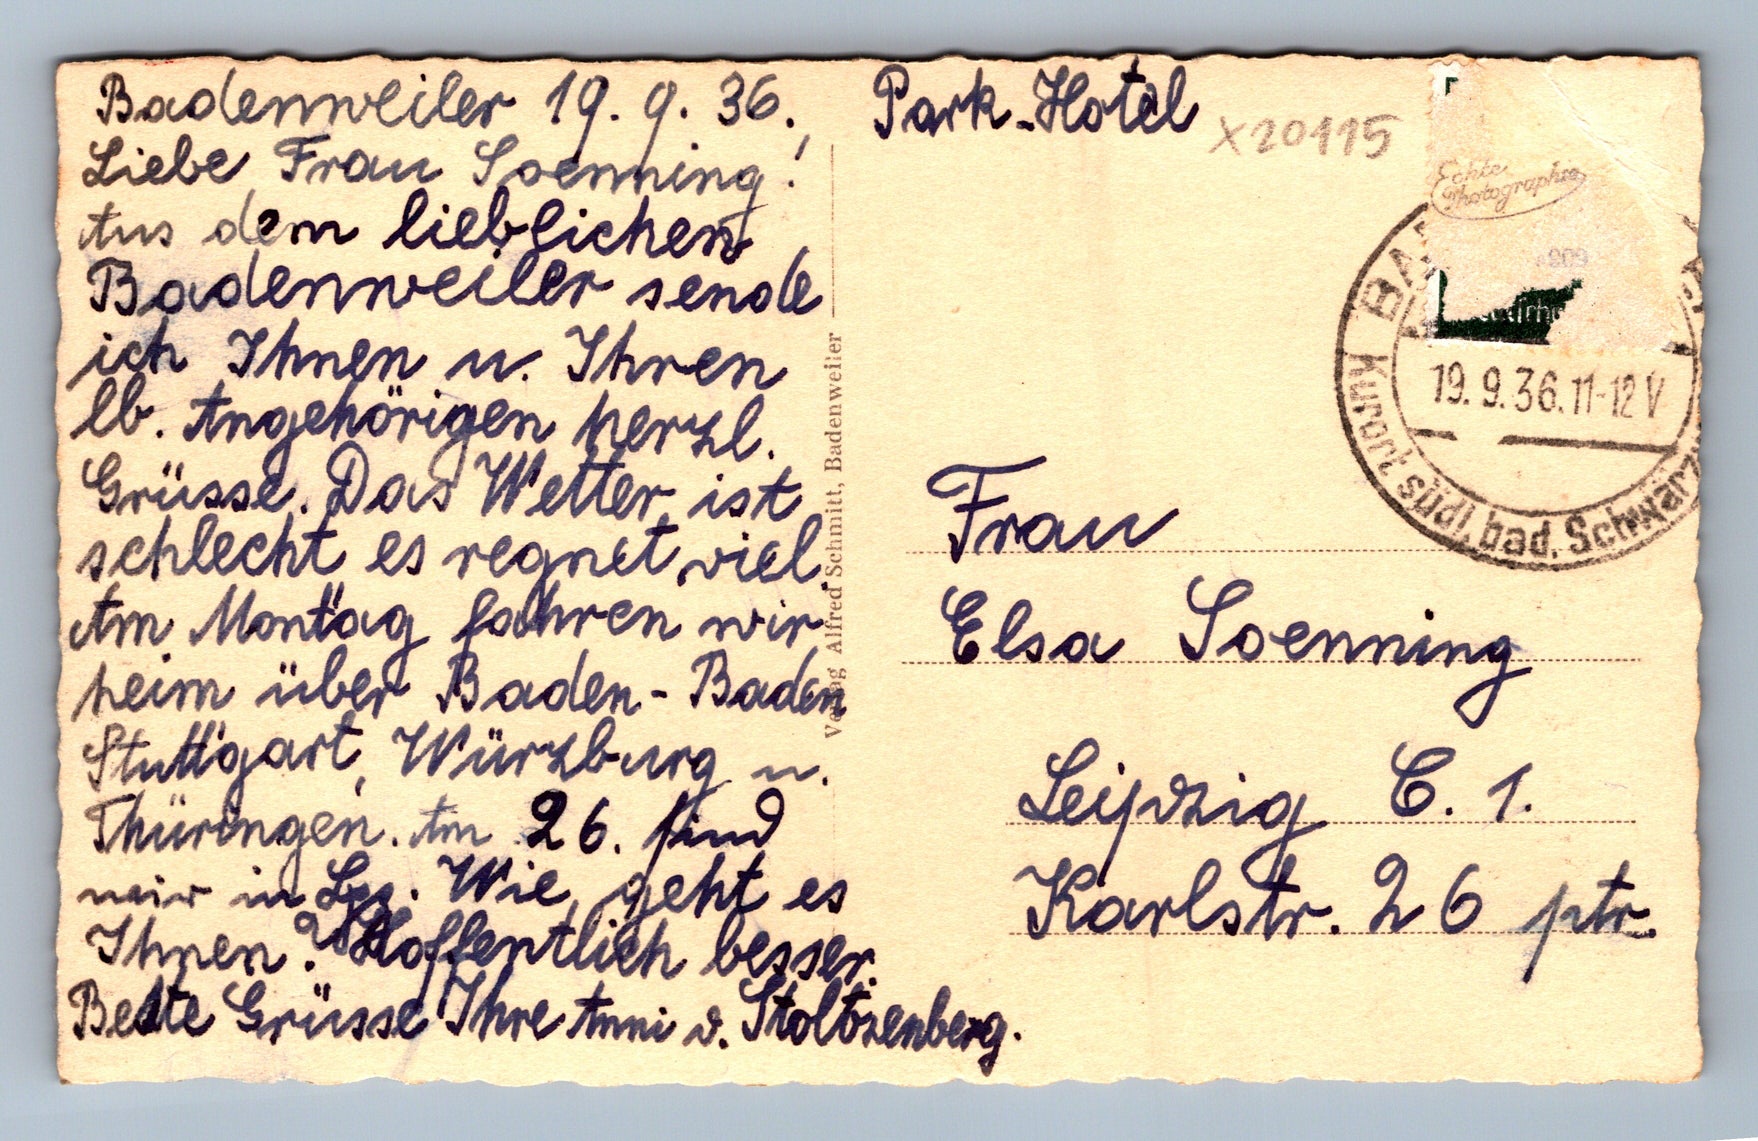 Badenweiler 19. 9. 36.,
Park-Hotel
Liebe Frau Soenning!
Aus dem lieblichen
Badenweiler sende
ich Ihnen u. Ihren
lb. Angehörigen herzl.
Grüsse. Das Wetter ist
schlecht es regnet viel.
Am Montag fahren wir
heim über Baden-Baden
Stuttgart, Würzburg u.
Thüringen. Am 26. sind
wir in Lpz. Wie geht es
Ihnen? Hoffentlich besser.
Beste Grüsse Ihre Anni v. Stoltzenberg.
Verlag Alfred Schmitt, Badenweiler
X20115
Echte
Photographie
19.9.36.11-12 V
Kurort südl. bad. Schwarz
Frau
Elsa Soenning
Leipzig C. 1.
Karlstr. 26 ptr.